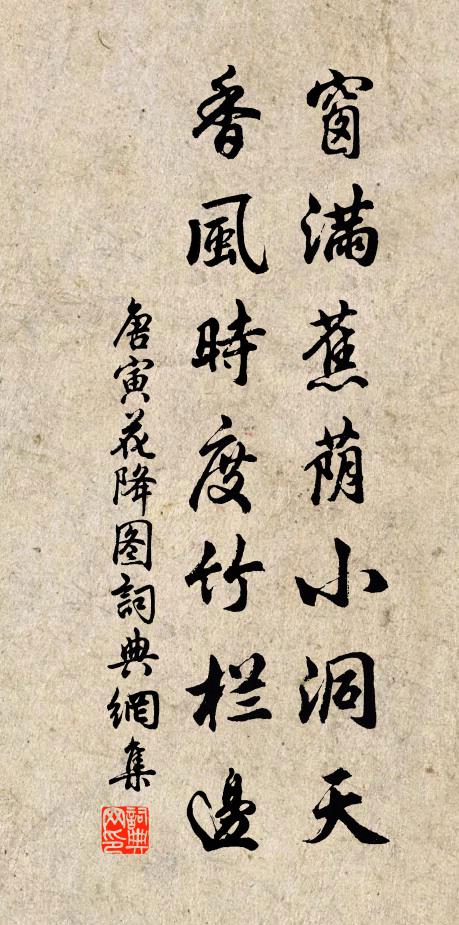 窗满蕉荫小洞天
香風時度竹栏邊
唐寅花降图詞典網集
詞典网印